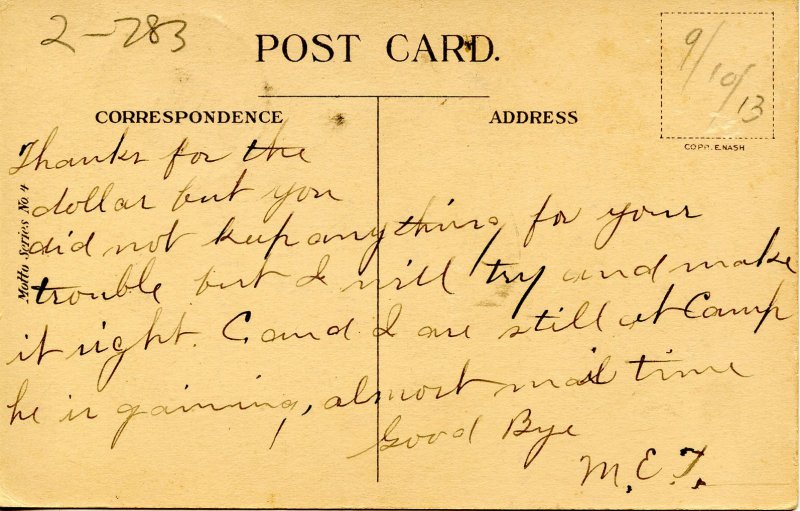 2-783
POST CARD.
9/10/13
COPR. E. NASH
CORRESPONDENCE
ADDRESS
Motto Series No 4
Thanks for the
dollar but you
did not keep anything for your
trouble but I will try and make
it right. C and I are still at Camp
he is gaining, almost mail time
Good Bye
M.E.T.